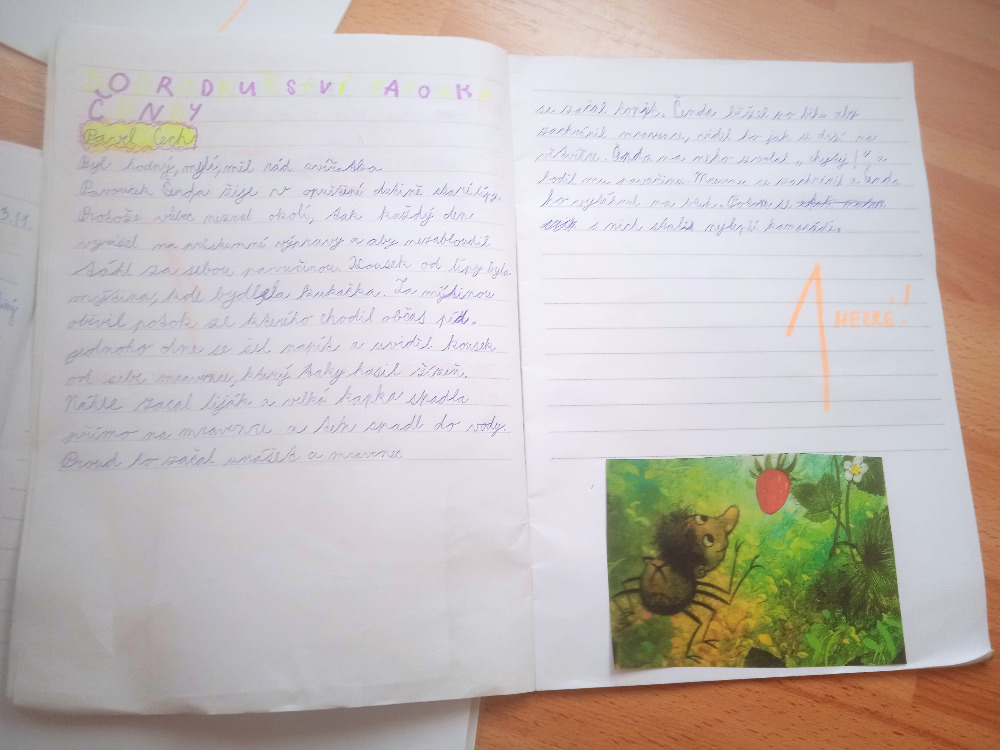 DOBRODRUŽSTVÍ PAVOUKA
ČENDY
Pavel Čech
Byl hodný, milý, měl rád zvířátka
Pavouček Čenda žije v opuštěné dutině staré lípy.
Protože vůbec neznal okolí, tak každý den
vyrážel na průzkumné výpravy a aby nezabloudil
táhl za sebou pavučinou. Kousek od lípy byla
mýtina, kde bydlela kukačka. Za mýtinou
objevil potok ze kterého chodil občas pít.
jednoho dne se šel napít a uviděl kousek
od sebe mravence, který taky hasil žízeň.
Náhle začal liják a velká kapka spadla
přímo na mravence a ten spadl do vody.
Proud ho začal unášet a mravenec
se začal topit. Čenda běžel po břehu aby
zachránil mravence, viděl ho jak se drží na
větvičce. Čenda na něho zvolal "chyť!" a
hodil mu pavučinu. Mravenec se zachránil a Čenda
ho vytáhnul na břeh. Potom se
z nich stali nejlepší kamarádi.
1
HEZKÉ!
3.11.